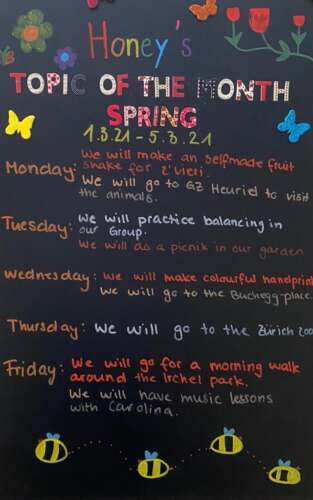 Honey's
TOPIC OF THE MONTH
SPRING
1.3.21 - 5.3.21
Monday: We will make an selfmade fruit
shake for z'Vieri.
We will go to GZ Heuried to visit
the animals.
Tuesday: We will practice balancing in
our Group.
We will do a picnik in our garden
Wednesday: We will make colourful handprint
We will go to the Buchegg-place.
Thursday: We will go to the Zürich zoo
Friday: We will go for a morning walk
around the Irchel park.
We will have music lessons
with Carolina.